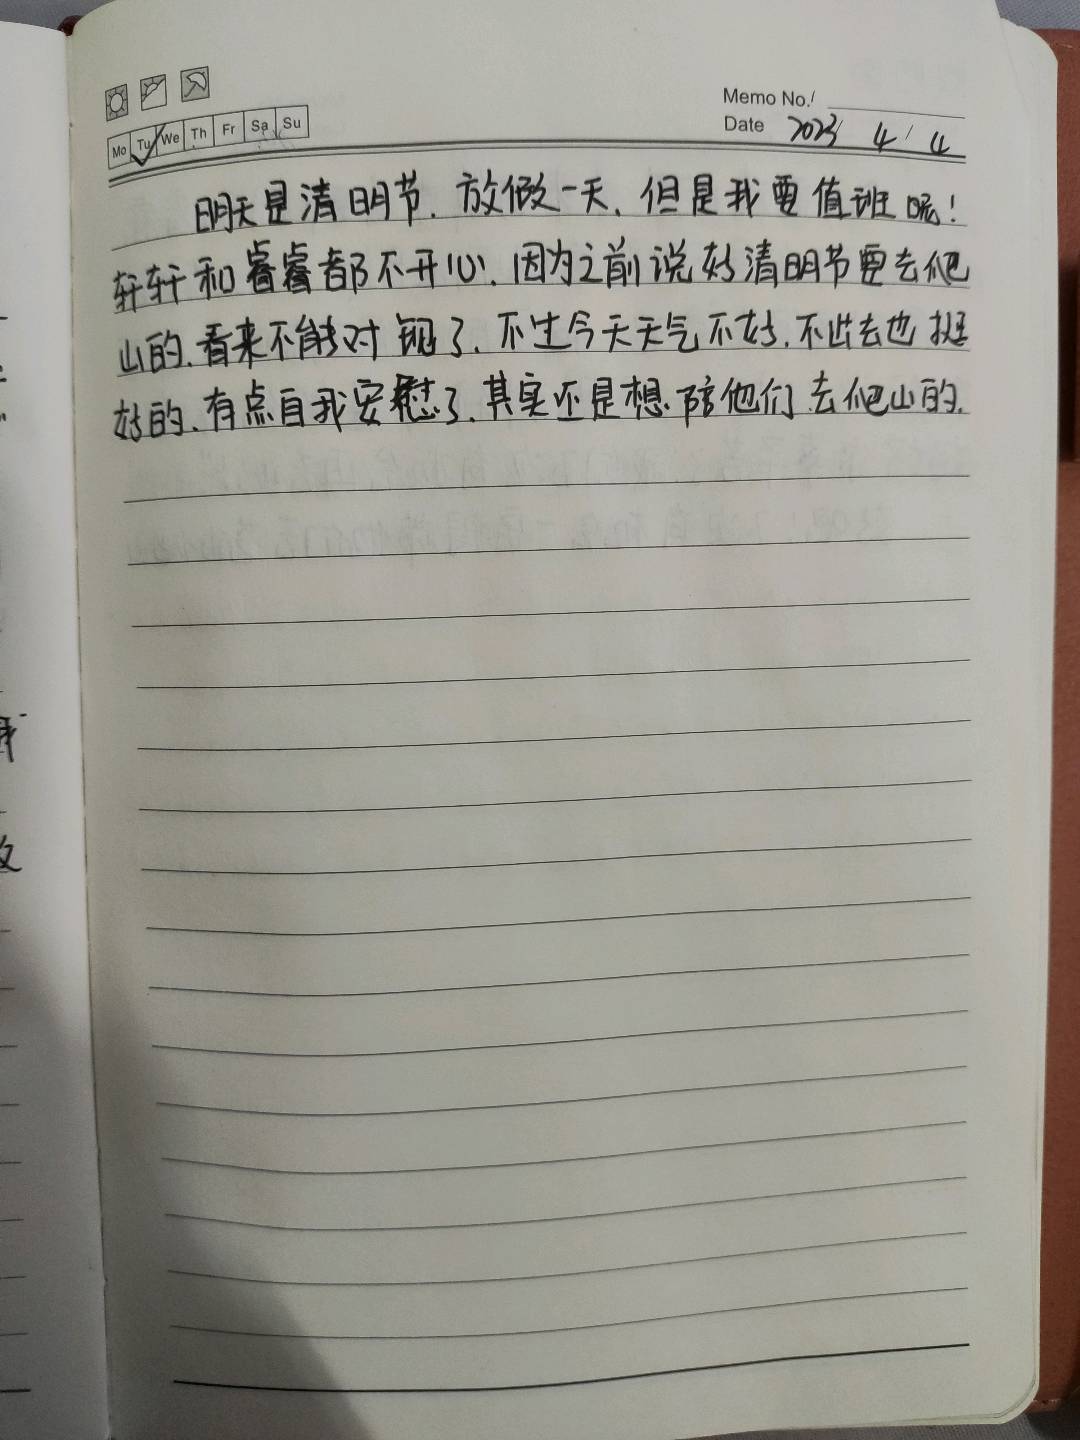 Memo No. /
Mo Tu We Th Fr Sa Su
Date 2023 / 4 / 4
明天是清明节. 放假一天. 但是我要值班呢!
轩轩和睿睿都不开心. 因为之前说好清明节要去爬
山的. 看来不能对现了. 不过今天天气不好. 不出去也挺
好的. 有点自我安慰了. 其实还是想陪他们去爬山的.